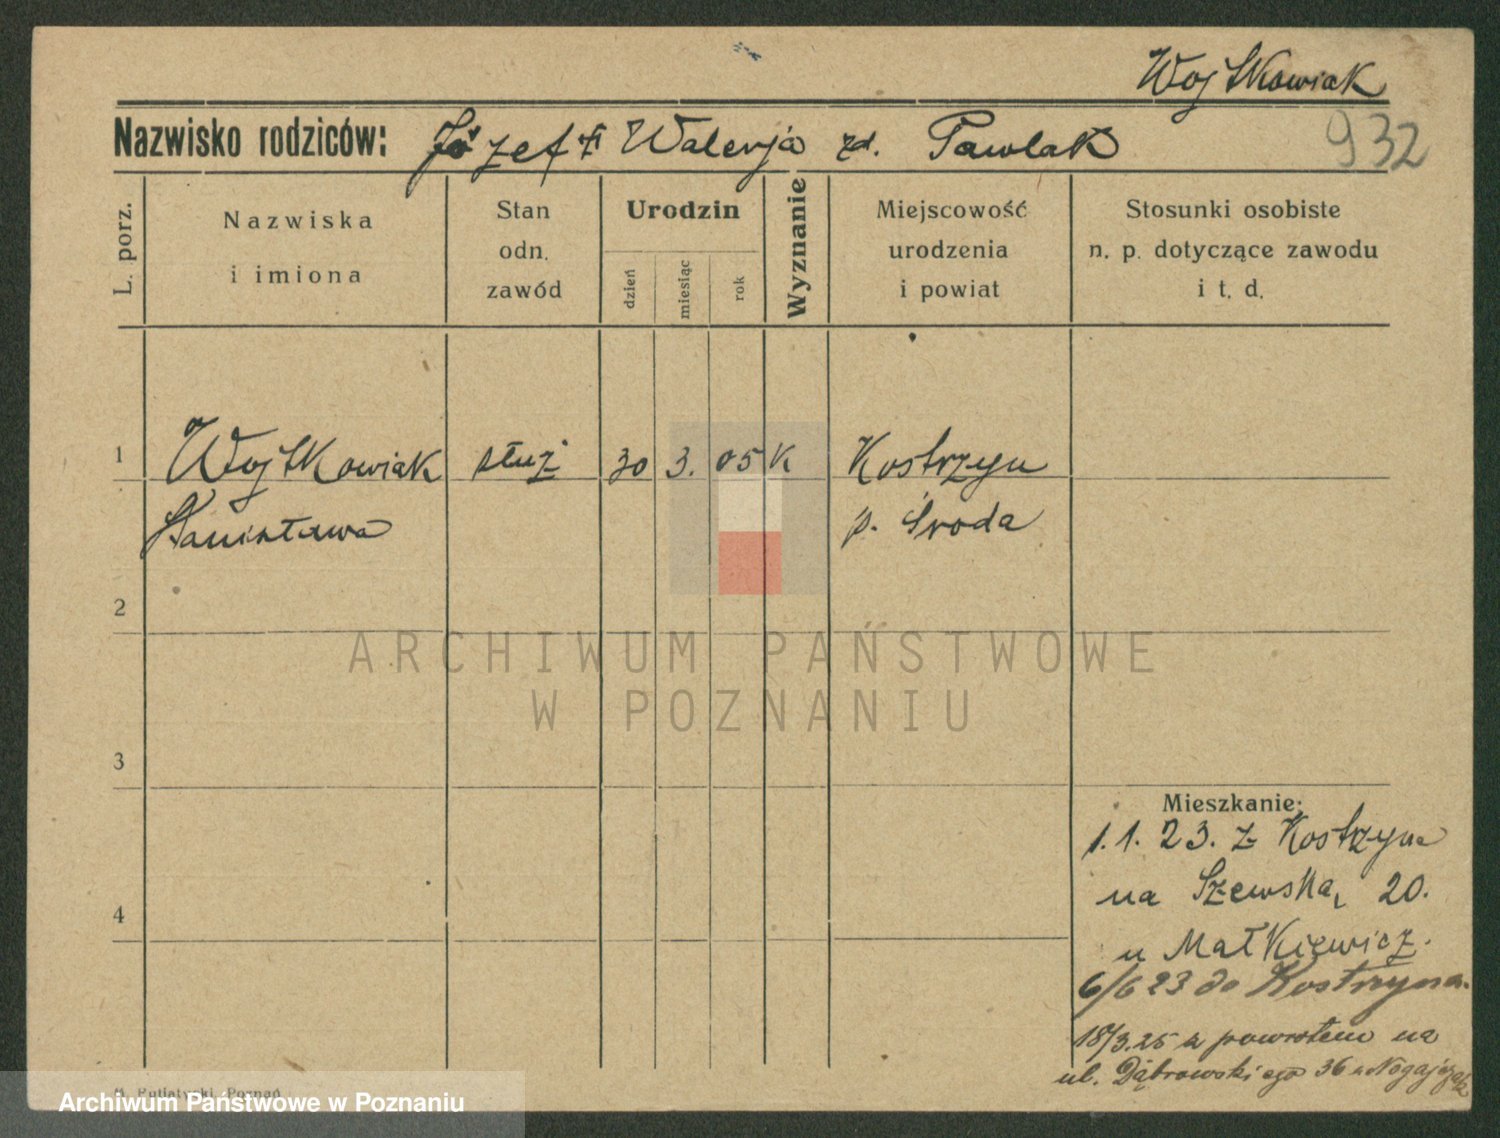 Wojtkowiak
Nazwisko rodziców: Józef i Walerja zd. Pawlak
932
L. porz.
Nazwiska
i imiona
Stan
odn.
zawód
Urodzin
dzień
miesiąc
rok
Wyznanie
Miejscowość
urodzenia
i powiat
Stosunki osobiste
n. p. dotyczące zawodu
i t. d.
1 Wojtkowiak służ 30 3. 05 K Kostrzyn
Stanisława p. Środa
2
ARCHIWUM PAŃSTWOWE
W POZNANIU
3
Mieszkanie:
1.1.23. z Kostrzyna
na Szewska, 20.
4
u Małkiewicz.
6/6 23 do Kostrzyna.
18/3.25 z powrotem na
ul. Dąbrowskiego 36 u
Putiatycki, Poznań
Archiwum Państwowe w Poznaniu